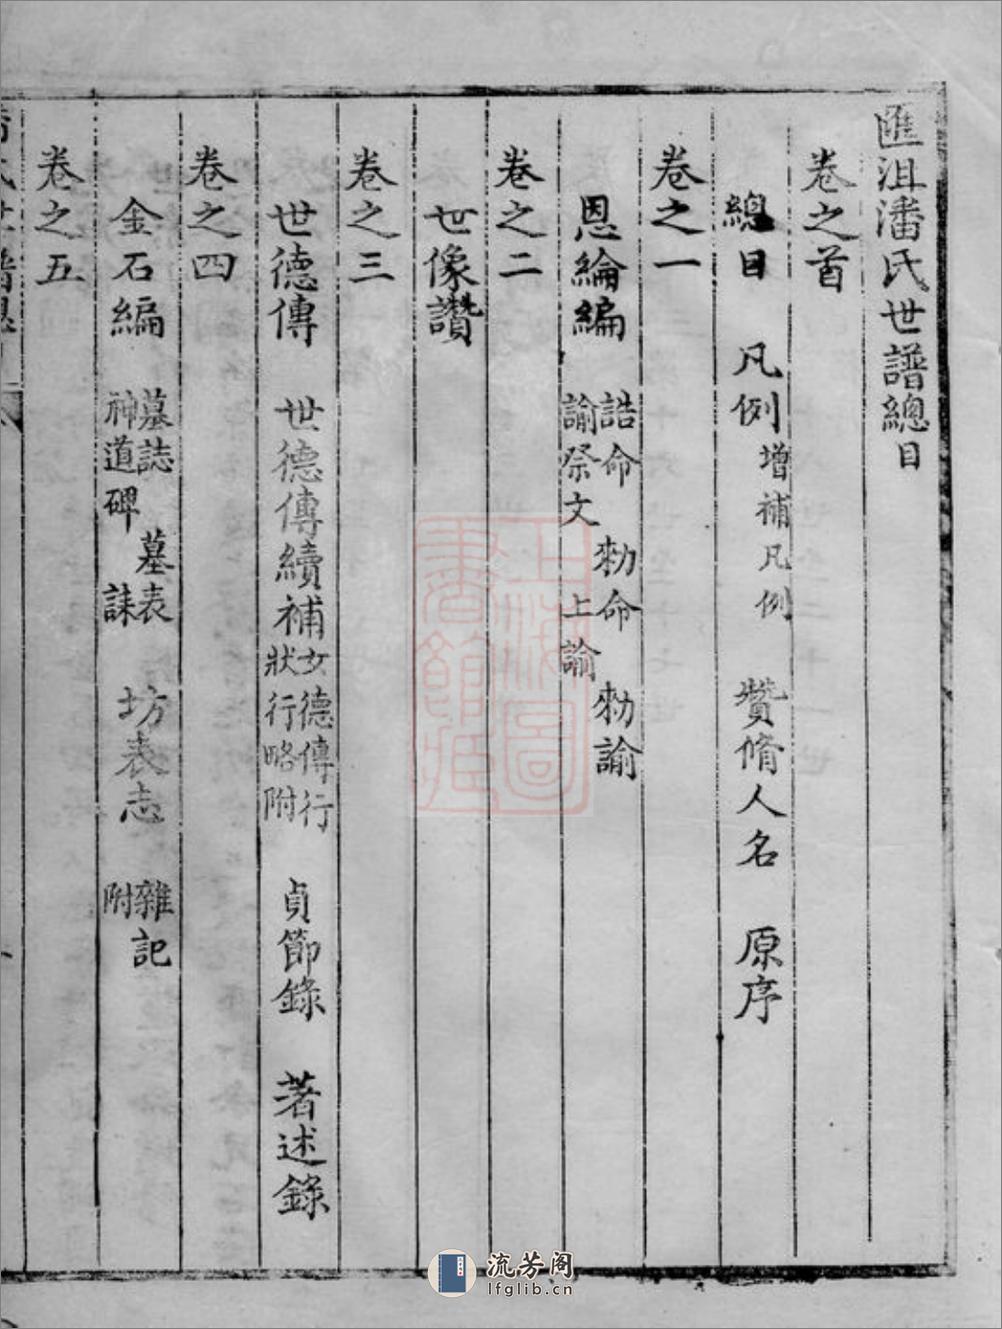 匯沮潘氏世譜總目
卷之首
總目 凡例 增補凡例 贊脩人名 原序
卷之一
恩綸編 誥命 勅命 勅諭 諭祭文 上諭
卷之二
世像讚
卷之三
世德傳 世德傳續補 女德傳行狀行略附 貞節錄 著述錄
卷之四
金石編 墓誌 墓表 神道碑 誄 坊表志 雜記附
卷之五
上海圖書館藏
流芳阁
lfglib.cn